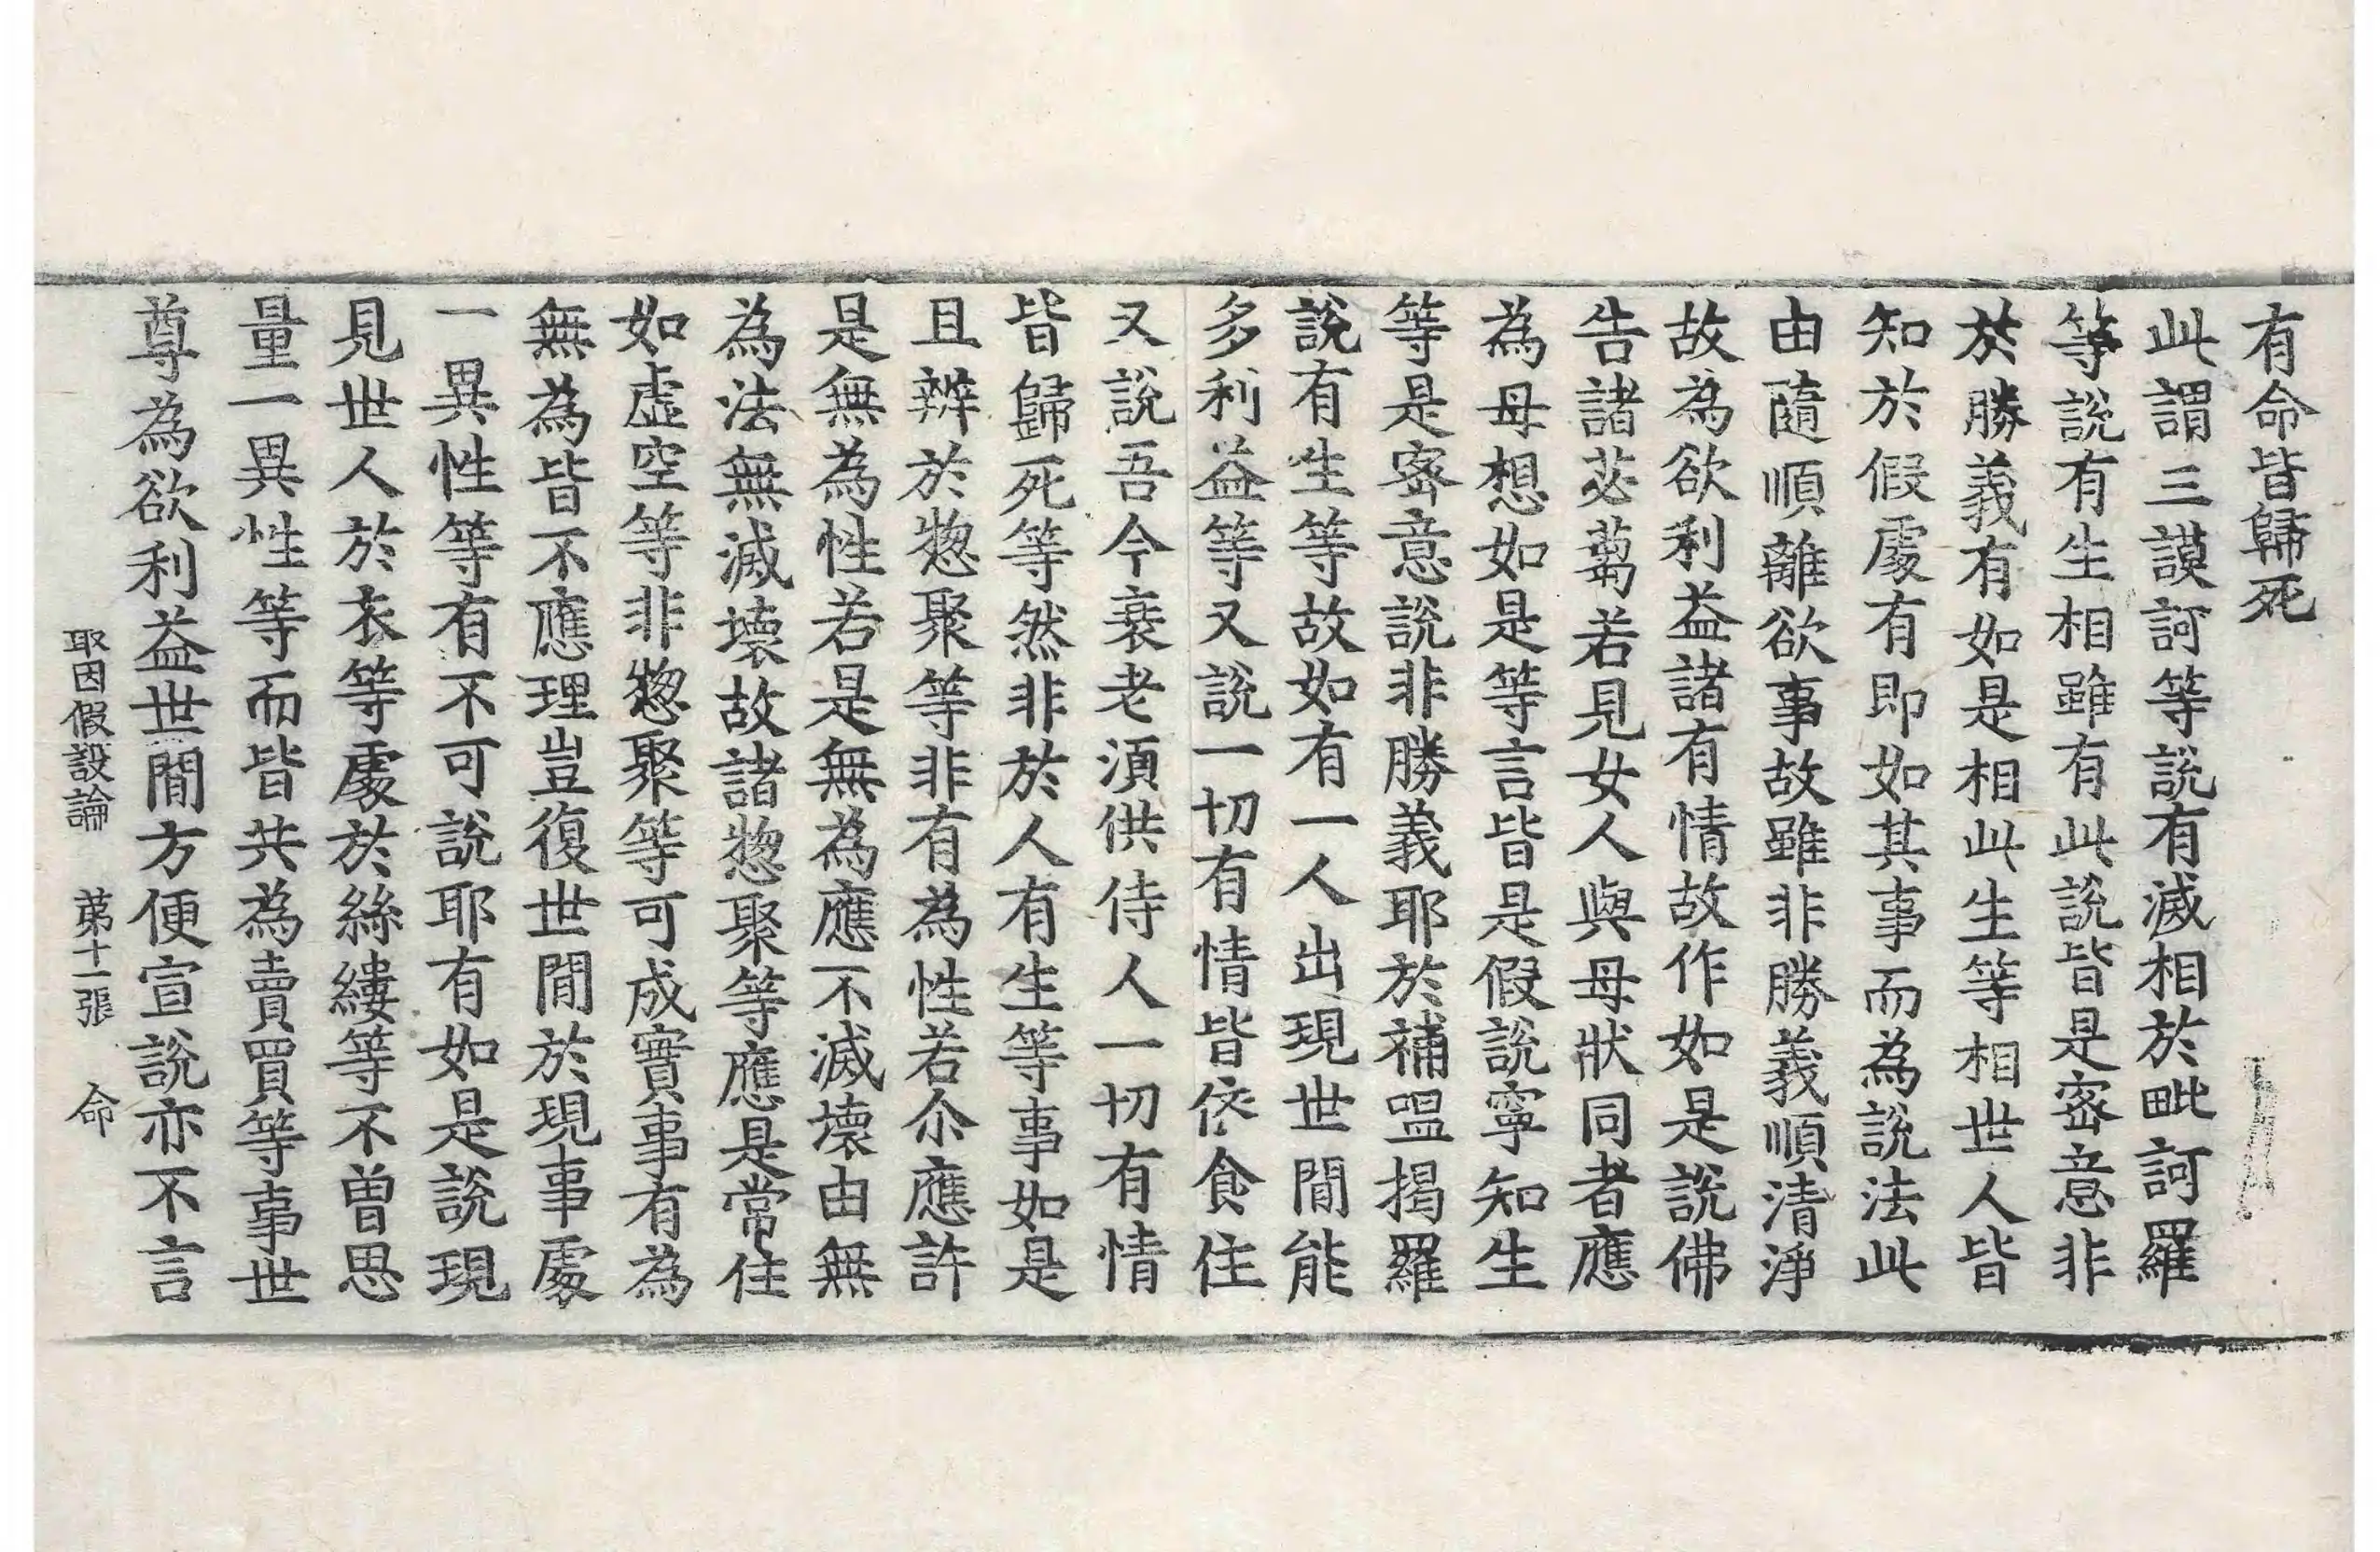 有命皆歸死
此謂三謨訶等說有滅相於毗訶羅
等說有生相雖有此說皆是密意非
於勝義有如是相此生等相世人皆
知於假處有即如其事而為說法此
由隨順離欲事故雖非勝義順清淨
故為欲利益諸有情故作如是說佛
告諸苾蒭若見女人與母狀同者應
為母想如是等言皆是假說寧知生
等是密意說非勝義耶於補㗌揭羅
說有生等故如有一人出現世間能
多利益等又說一切有情皆依食住
又說吾今衰老須供侍人一切有情
皆歸死等然非於人有生等事如是
且辯於惣聚等非有為性若尒應許
是無為性若是無為應不滅壞由無
為法無滅壞故諸惣聚等應是常住
如虛空等非惣聚等可成實事有為
無為皆不應理豈復世間於現事處
一異性等有不可說耶有如是說現
見世人於衣等處於絲縷等不曾思
量一異性等而皆共為賣買等事世
尊為欲利益世間方便宣說亦不言
取因假設論 苐十一張 命